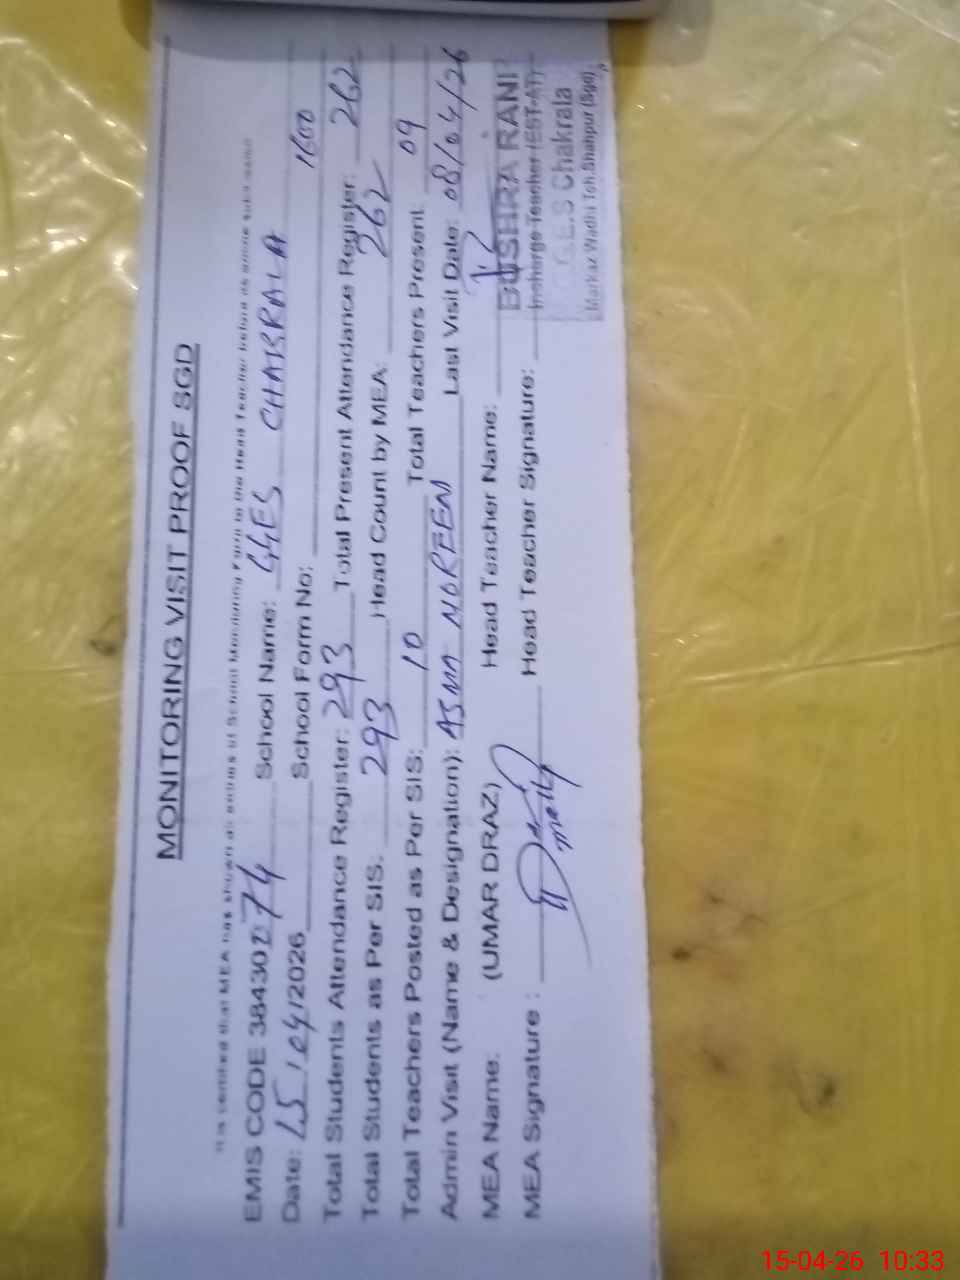 MONITORING VISIT PROOF SGD
It is certified that MEA has shown all entries of School Monitoring Form to the Head Teacher before its online submission
EMIS CODE 38430074 School Name: GGES CHAKRALA
Date: 15/04/2026 School Form No: 1600
Total Students Attendance Register: 293 Total Present Attendance Register: 262
Total Students as Per SIS: 293 Head Count by MEA: 262
Total Teachers Posted as Per SIS: 10 Total Teachers Present: 09
Admin Visit (Name & Designation): ASMA NOREEN Last Visit Date: 08/04/26
MEA Name: (UMAR DRAZ) Head Teacher Name: BUSHRA RANI
MEA Signature: Head Teacher Signature: Incharge Teacher (EST-AT)
G.E.S Chakrala
Markaz Wadhi Teh.Shahpur (Sgd)
15-04-26 10:33